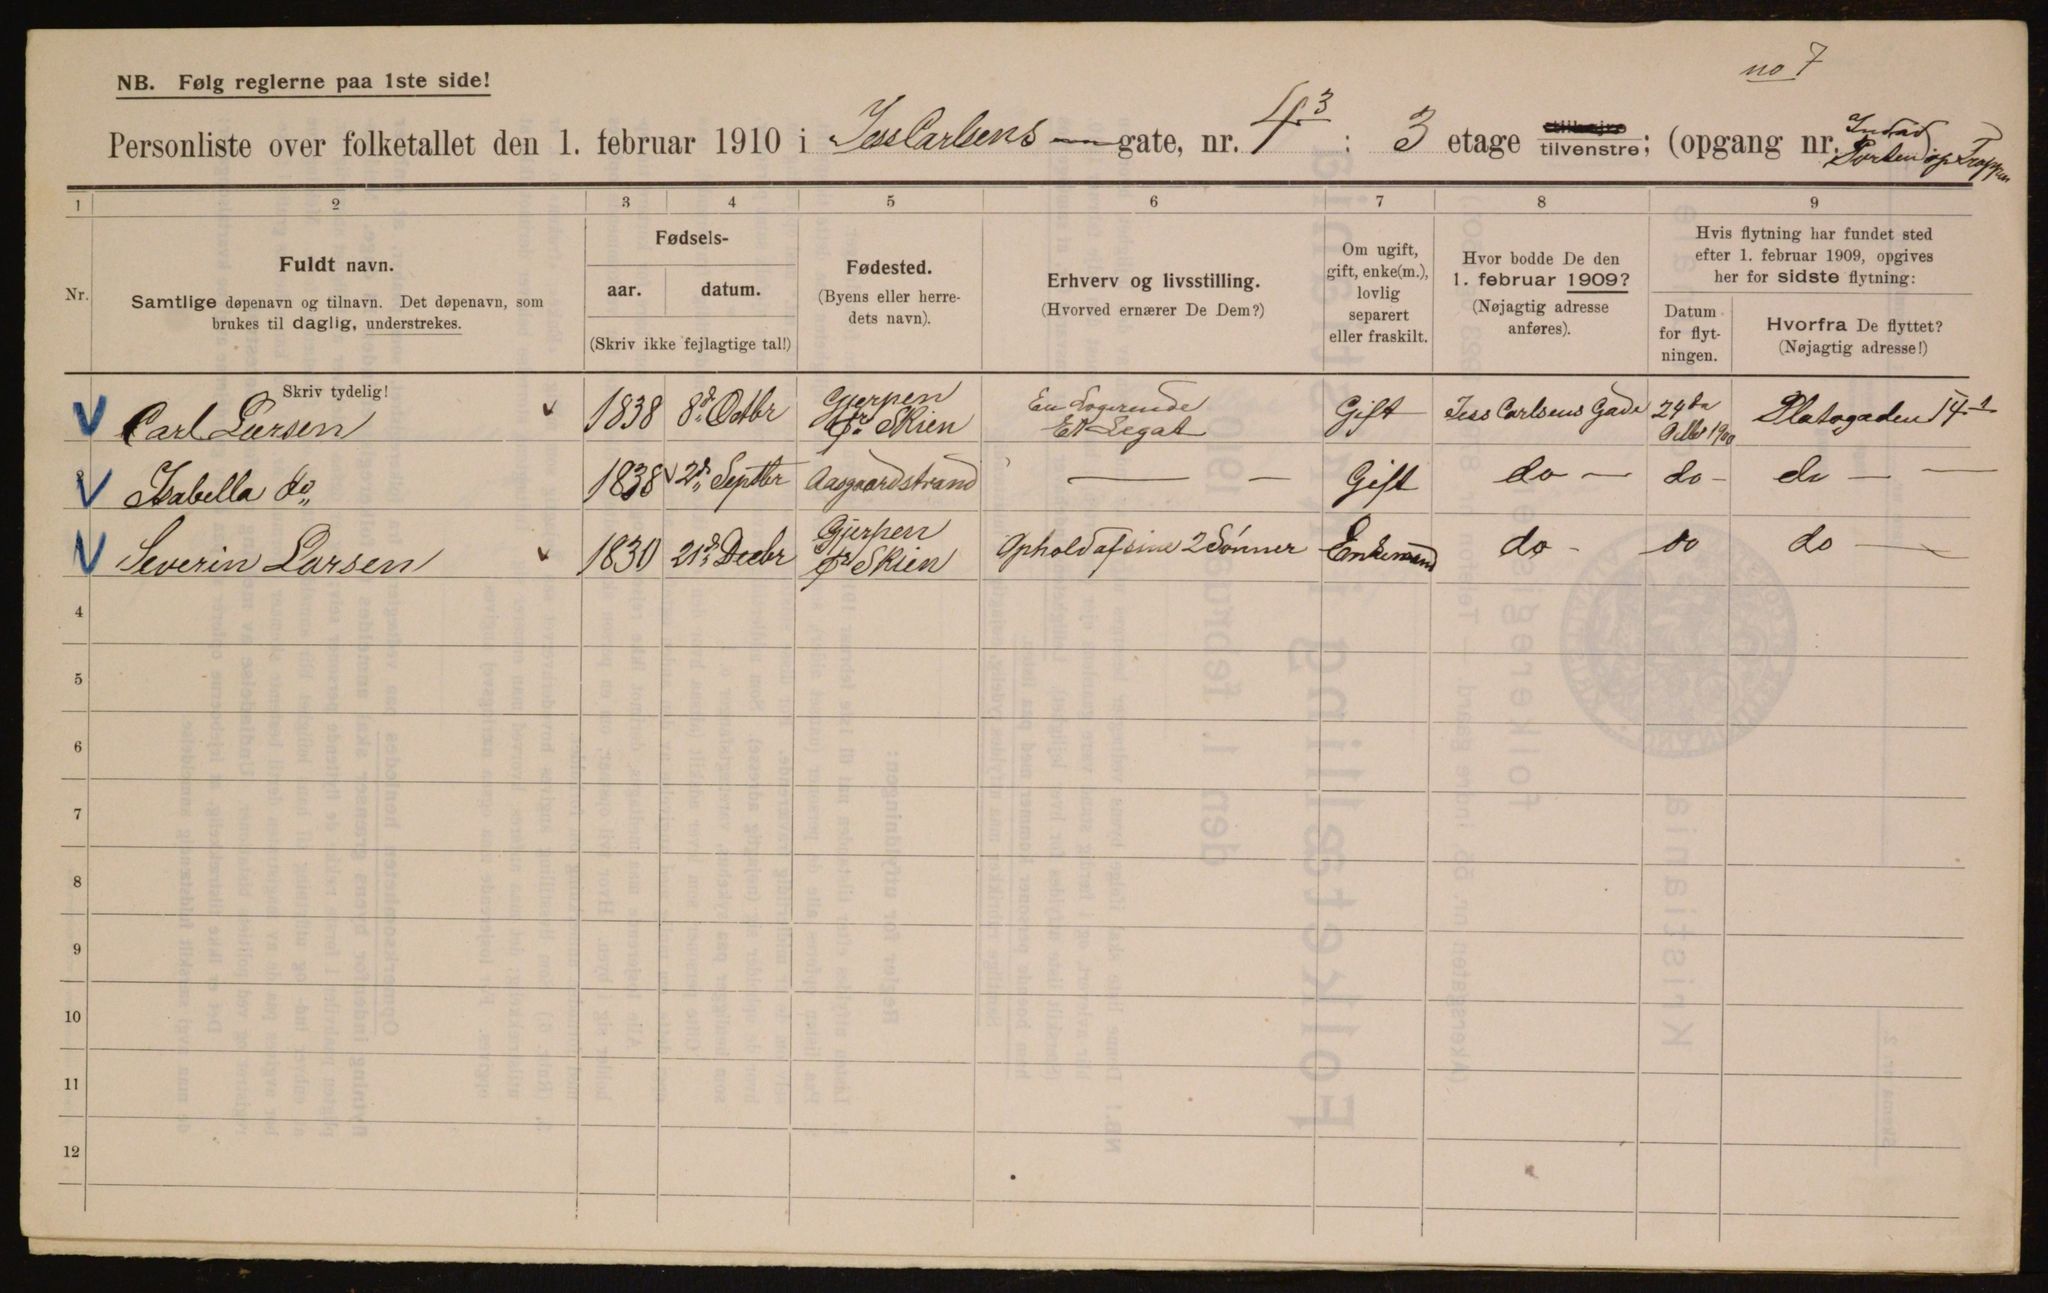 no 7
NB. Følg reglerne paa 1ste side!
Personliste over folketallet den 1. februar 1910 i Jess Carlsens gate, nr. 4 3 : 3 etage tilvenstre; (opgang nr. Indad Porten op Trappen
1 2 3 4 5 6 7 8 9
Nr.
Fuldt navn.
Samtlige døpenavn og tilnavn. Det døpenavn, som
brukes til daglig, understrekes.
Fødsels-
aar. datum.
(Skriv ikke fejlagtige tal!)
Fødested.
(Byens eller herre-
dets navn).
Erhverv og livsstilling.
(Hvorved ernærer De Dem?)
Om ugift,
gift, enke(m.),
lovlig
separert
eller fraskilt.
Hvor bodde De den
1. februar 1909?
(Nøjagtig adresse
anføres).
Hvis flytning har fundet sted
efter 1. februar 1909, opgives
her for sidste flytning:
Datum
for flyt-
ningen.
Hvorfra De flyttet?
(Nøjagtig adresse!)
Skriv tydelig!
Carl Larsen 1838 8de Octbr Gjerpen pr. Skien En Logerende Et Legat Gift Jess Carlsens Gade 24da 1900 Platogaden 14
Isabella do 1838 2d Septbr Aasgaardstrand — — Gift do — do - do — —
Severin Larsen 1830 21d Decbr Gjerpen pr Skien Ophold af sine 2 Sønner Enkemand do - do do —
4
5
6
7
8
9
10
11
12